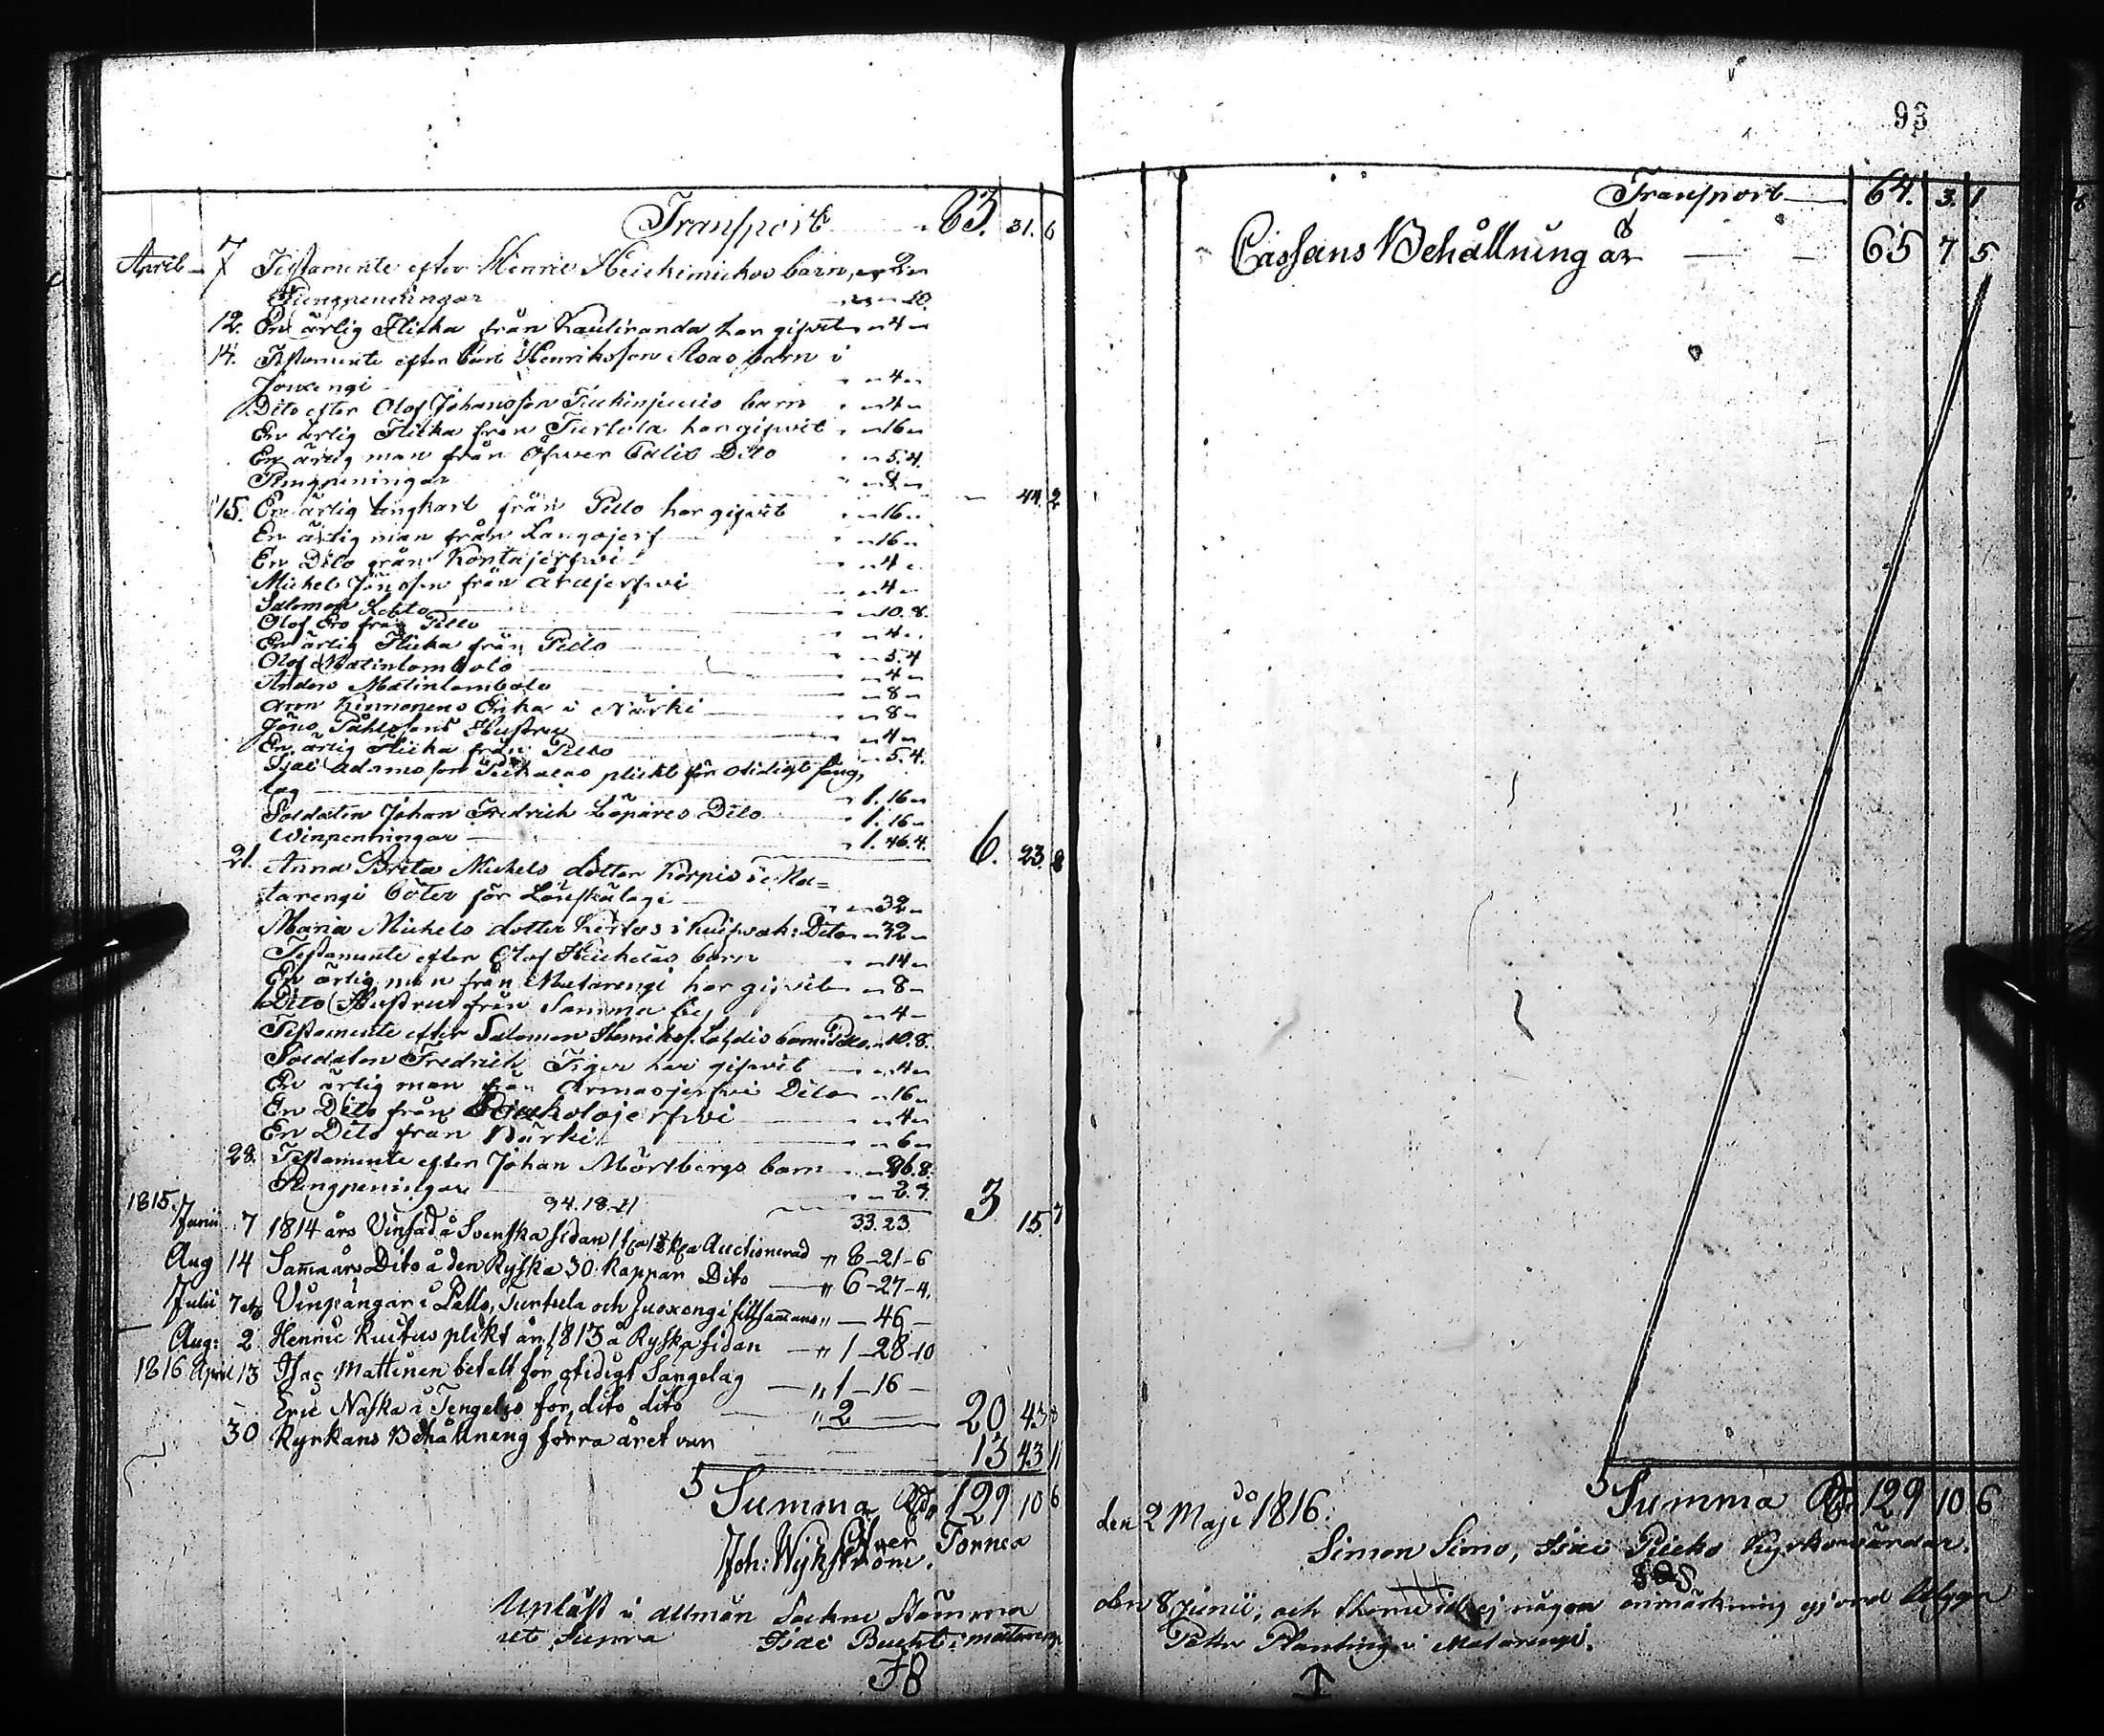 Transport 63. 31. 6
April 7 Testamente efter Henric Heickimickos barn, 2
Pungpenningar 10
12. En ärlig flicka från Kauliranda har gifvit 4
14. Testamente efter Carl Henriksson Roas barn i
Jouxengi 4
Dito efter Olof Johansson barn 4
En ärlig Flicka från Turtola har gifvit 16
En ärlig man från Öfwer Dito 5.4.
Pungpeningar 8
44. 2
15. En ärlig ungkarl från Pello har gifvit 16
En ärlig man från Langojerf 16
En Dito från Kontajerfwi 4
Michel Jönsson från Arajerfwi 4
Salomon Lehto 10.8.
Olof Ero från Pello 4
En ärlig Flicka från Pello 5.4
Olof Matinlombolo 4
Anders Matinlombolo 8
Arm Kinnonens Erika i Närki 8
Jöns Påhlssons Hustru 4
En ärlig flicka från Pello 5.4.
Isac Adamsson plickt för otidigt säng,
lag 1. 16
Soldaten Johan Fredrich Löpares Dito 1. 16
Winpenningar 1. 46.4.
6. 23. 8
21. Anna Brita Michels dotter Korpis i Ma=
tarengi böter för Lönskaläge 32
Maria Michels dotter Kertus i Kuifvak: Dito 32
Testamente efter Olof Heickeläs barn 14
En ärlig man från Matarengi har gifvit 8
Dito Hustru från Samma by 4
Testamente efter Salomon Henrikss. barn i Pello 10.8.
Soldaten Fredrich Tiger har gifvit 4
En ärlig man från Armasjerfwi Dito 16
En Dito från jerfwi 4
En Dito från Närki 6
28. Testamente efter Johan Mörtbergs barn 26.8.
Pungpeningar 2.7.
3 15. 7
94.18.11
33.23
1815. Junii 7 1814 års Vinsäd å Svenska sidan Auctionerad 8-21-6
Aug 14 Samma års Dito å den Ryska 30 kappar Dito 6-27-4.
Julii 7 Vinpängar i Pello, Turtula och Juoxengi tillsammans 46
Aug: 2 Henric Kuitus plikt år 1813 å Ryska sidan 1-28-10
1816 April 13 Isac Mattinen betalt för otidigt Sängelag 1-16
Eric Naska i Tengeliö för dito dito 2
20 43 8
30 Kyrkans Behållning förra året var 13 43 11
Summa Rd. 129 10 6
Öfver Tornea
Joh: Wykström.
Upläst i allmän Sockne Stämma
ut Supra Isac Bucht i Matarengi
F8
93
Transport 64. 3. 1
Cassans Behållning är 65 7 5
Summa Rd. 129 10 6
den 2 Maji 1816.
Simon Simo, Isac Piecko Kyrkowärdar.
den 8 Junii, och ej någon anmärkning gjord
Petter Planting i Matarengi.